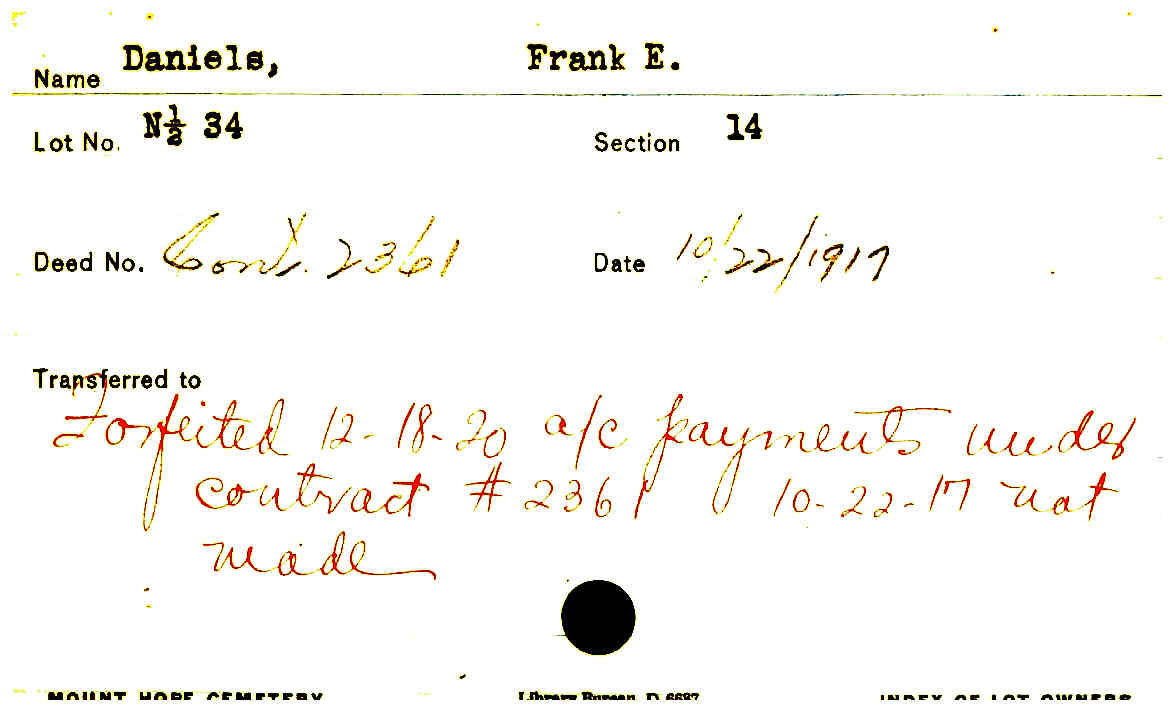 Name Daniels, Frank E.
Lot No. N½ 34 Section 14
Deed No. Cont. 2361 Date 10/22/1917
Transferred to
Forfeited 12-18-20 a/c payments under
contract # 2361 10-22-17 not
made
MOUNT HOPE CEMETERY Library Bureau D 6687 INDEX OF LOT OWNERS